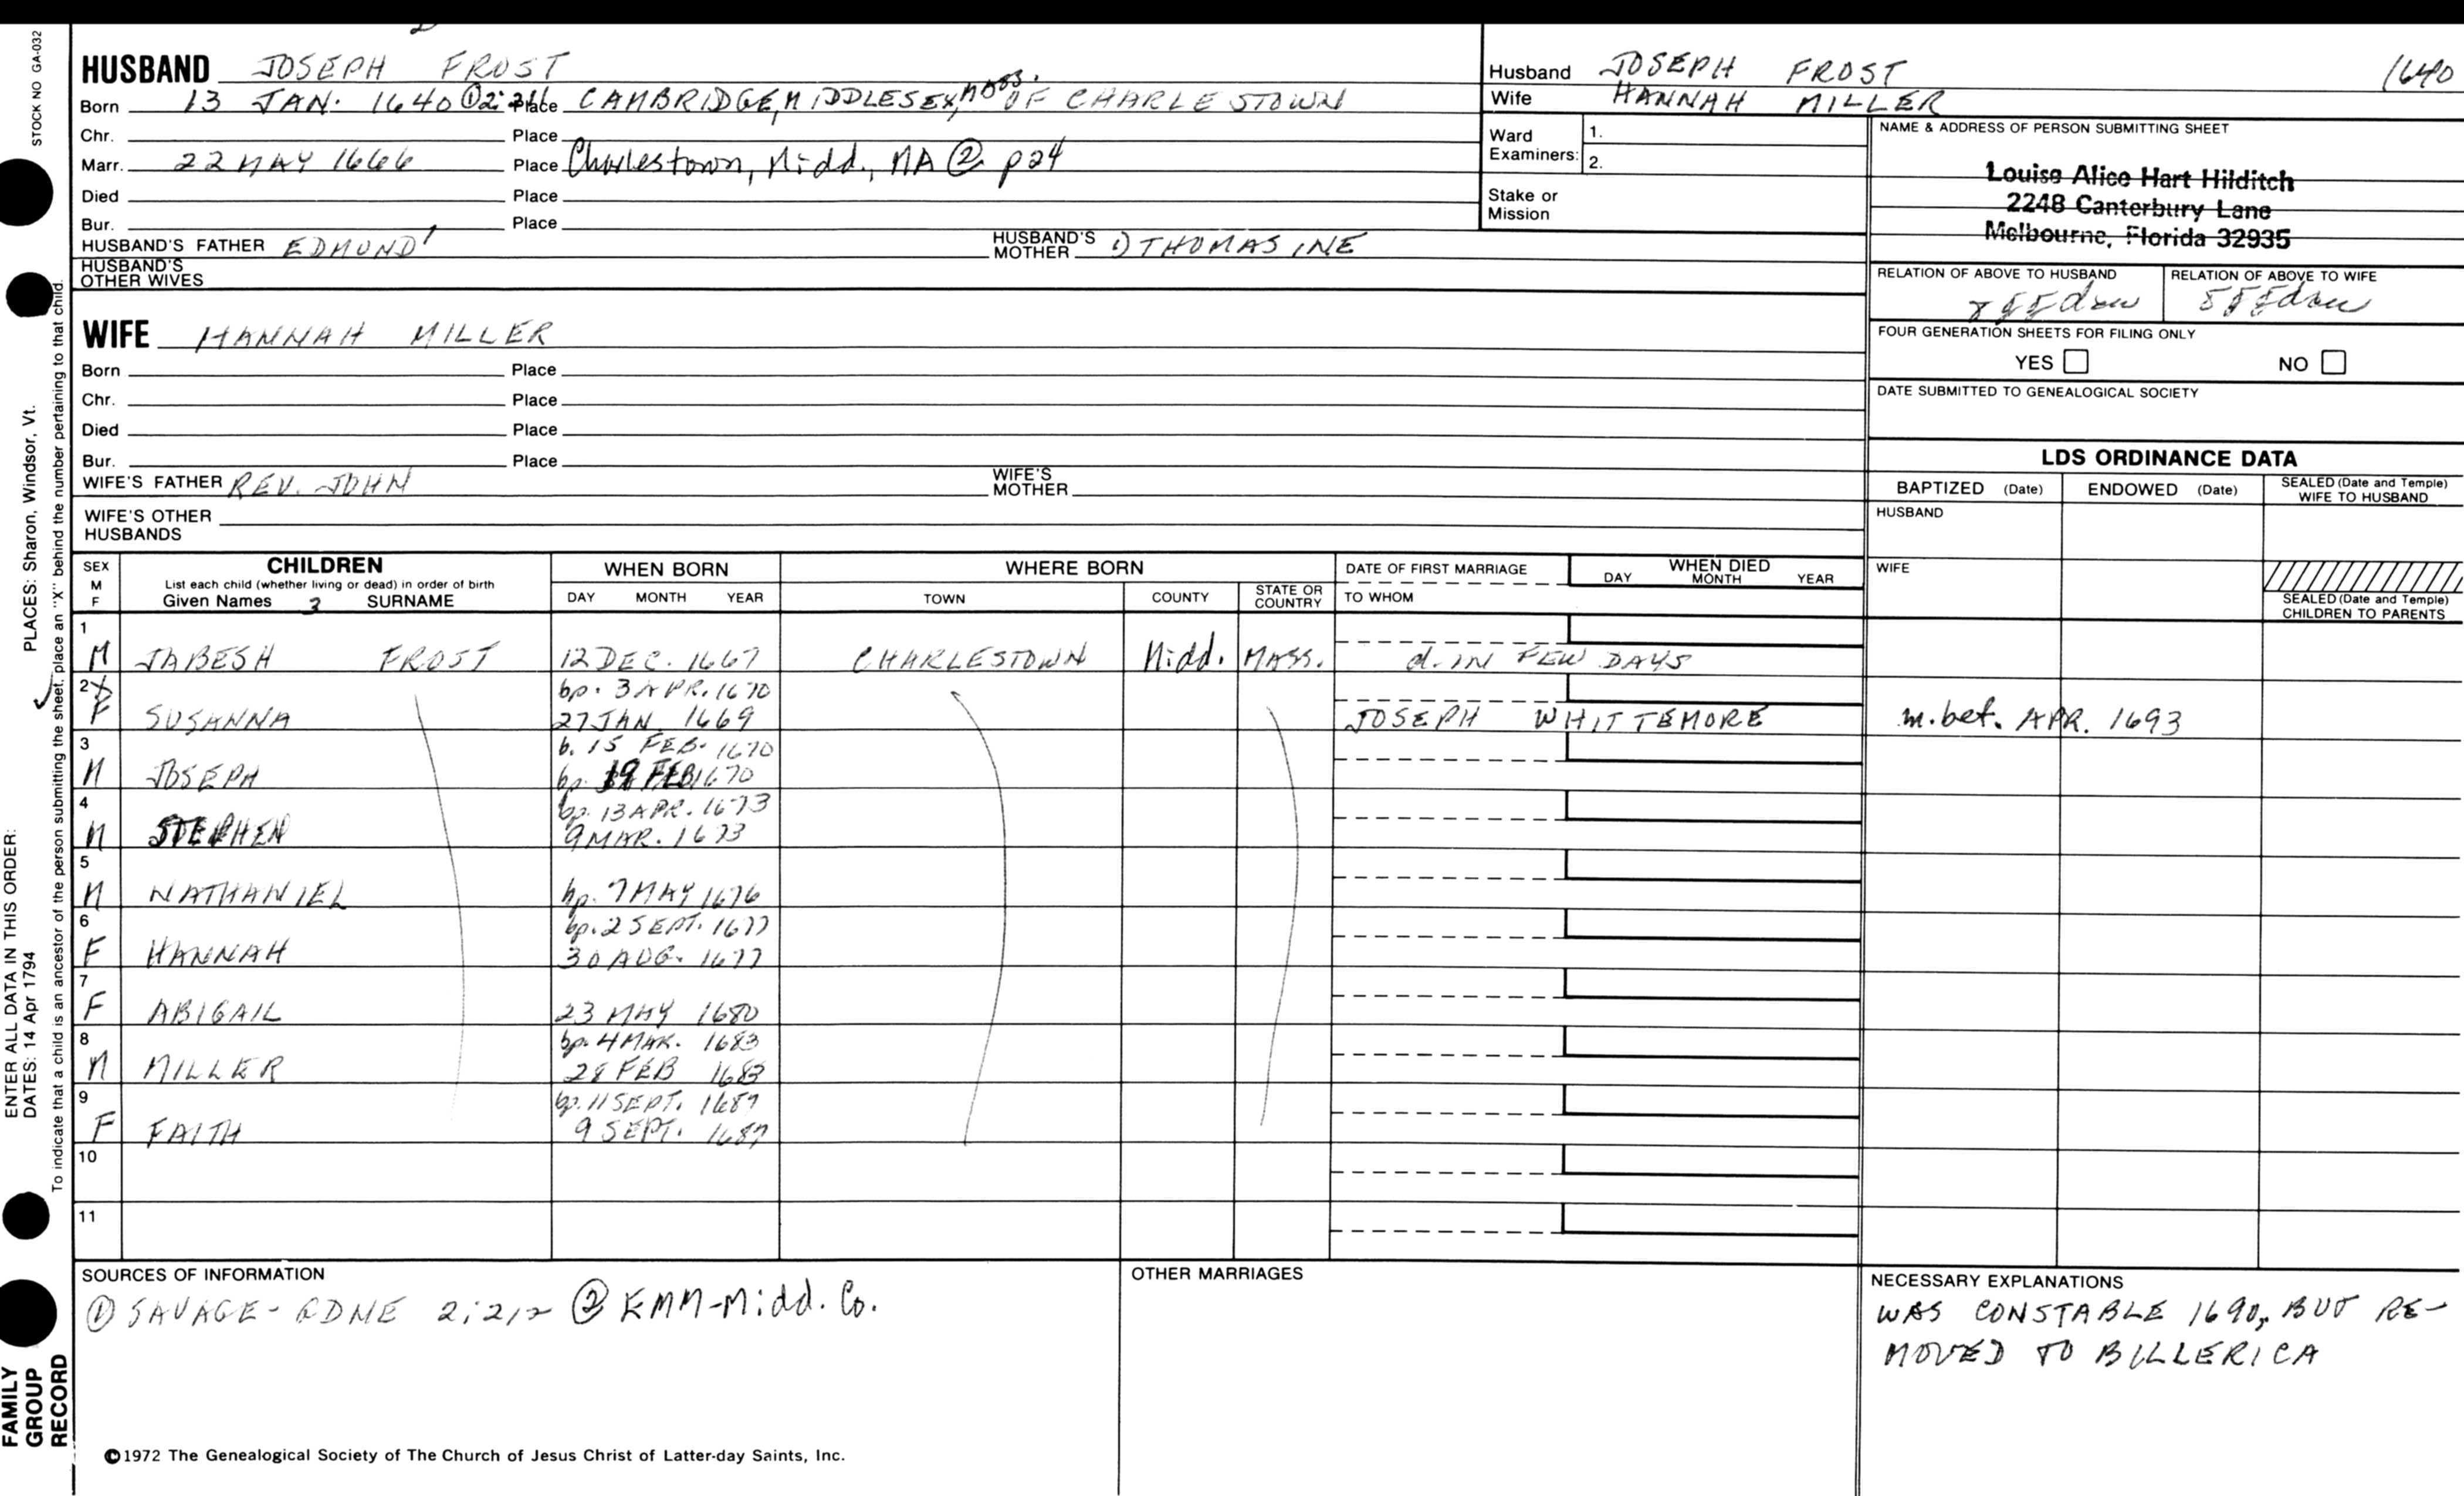 STOCK NO GA-032
HUSBAND JOSEPH FROST
Born 13 JAN. 1640 Place CAMBRIDGE, MIDDLESEX, MASS. OF CHARLESTOWN
Chr. Place
Marr. 22 MAY 1666 Place Charlestown, Midd., MA ② p24
Died Place
Bur. Place
HUSBAND'S FATHER EDMUND HUSBAND'S MOTHER 1) THOMASINE
HUSBAND'S OTHER WIVES
WIFE HANNAH MILLER
Born Place
Chr. Place
Died Place
Bur. Place
WIFE'S FATHER REV. JOHN WIFE'S MOTHER
WIFE'S OTHER HUSBANDS
Husband JOSEPH FROST 1640
Wife HANNAH MILLER
Ward Examiners: 1.
2.
Stake or Mission
NAME & ADDRESS OF PERSON SUBMITTING SHEET
Louise Alice Hart Hilditch
2248 Canterbury Lane
Melbourne, Florida 32935
RELATION OF ABOVE TO HUSBAND RELATION OF ABOVE TO WIFE
FOUR GENERATION SHEETS FOR FILING ONLY
YES NO
DATE SUBMITTED TO GENEALOGICAL SOCIETY
LDS ORDINANCE DATA
BAPTIZED (Date) ENDOWED (Date) SEALED (Date and Temple) WIFE TO HUSBAND
HUSBAND
WIFE
SEALED (Date and Temple) CHILDREN TO PARENTS
SEX M F
CHILDREN
List each child (whether living or dead) in order of birth
Given Names 2 SURNAME
WHEN BORN
DAY MONTH YEAR
WHERE BORN
TOWN COUNTY STATE OR COUNTRY
DATE OF FIRST MARRIAGE
TO WHOM
WHEN DIED
DAY MONTH YEAR
1
M JABESH FROST 12 DEC. 1667 CHARLESTOWN Midd. MASS. d. IN FEW DAYS
2 X bp. 3 APR. 1670
F SUSANNA 27 JAN. 1669 JOSEPH WHITTEMORE m. bet. APR. 1693
3 b. 15 FEB. 1670
M JOSEPH bp. 19 FEB 1670
4 bp. 13 APR. 1673
M STEPHEN 9 MAR. 1673
5
M NATHANIEL bp. 7 MAY 1676
6 bp. 2 SEPT. 1677
F HANNAH 30 AUG. 1677
7
F ABIGAIL 23 MAY 1680
8 bp. 4 MAR. 1683
M MILLER 28 FEB 1683
9 bp. 11 SEPT. 1687
F FAITH 9 SEPT. 1687
10
11
SOURCES OF INFORMATION
① SAVAGE - GDNE 2:212 ② EMM-Midd. Co.
OTHER MARRIAGES
NECESSARY EXPLANATIONS
WAS CONSTABLE 1690, BUT RE-
MOVED TO BILLERICA
©1972 The Genealogical Society of The Church of Jesus Christ of Latter-day Saints, Inc.
FAMILY
GROUP
RECORD
ENTER ALL DATA IN THIS ORDER:
DATES: 14 Apr 1794 PLACES: Sharon, Windsor, Vt.
To indicate that a child is an ancestor of the person submitting the sheet, place an "X" behind the number pertaining to that child.